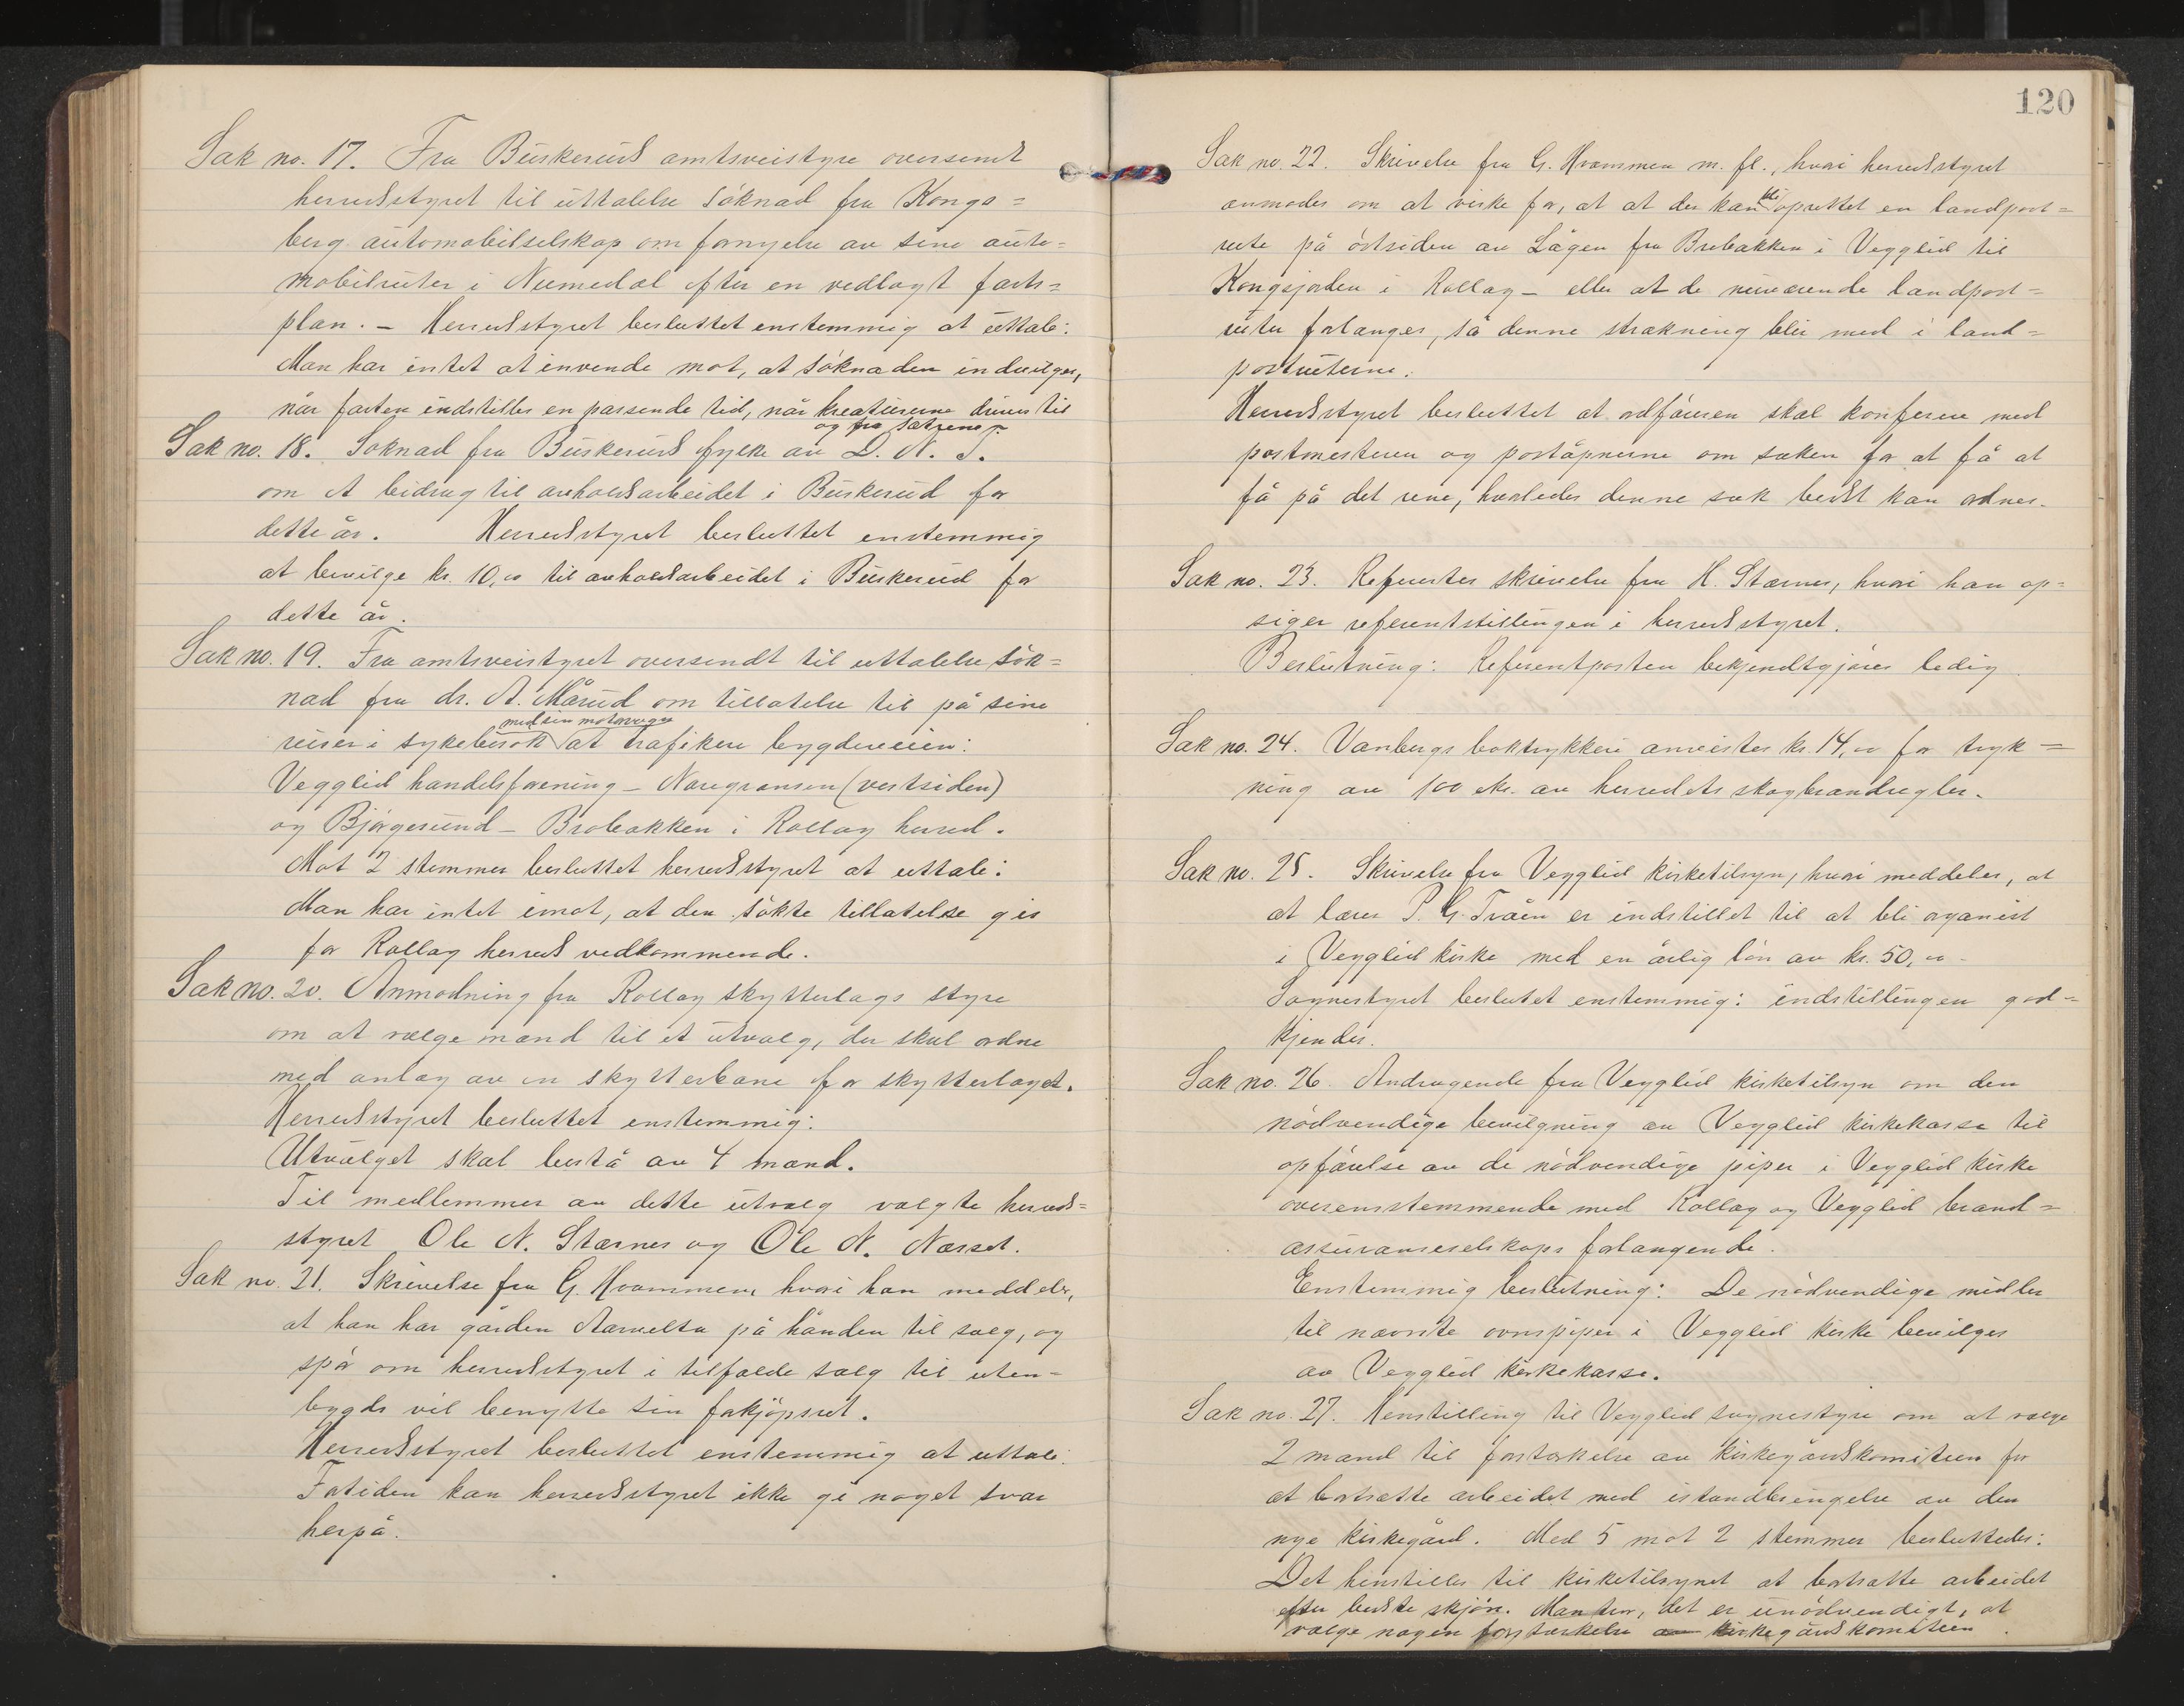 Sak no. 17. Fra Buskeruds amtsveistyre oversendt
herredsstyret til uttalelse søknad fra Kongs=
berg automobilselskap om fornyelse av sine auto=
mobilruter i Numedal efter en vedlagt farts=
plan. – Herredsstyret besluttet enstemmig at uttale:
Man har intet at invende mot, at søknaden indvilges,
når farten indstilles en passende tid, når kreaturerne drives til
og fra sætrene.
Sak no. 18. Søknad fra Buskeruds fylke av D. N. T.
om et bidrag til avholdsarbeidet i Buskerud for
dette år. Herredsstyret besluttet enstemmig
at bevilge kr. 10,00 til avholdsarbeidet i Buskerud for
dette år.
Sak no. 19. Fra amtsveistyret oversendt til uttalelse søk=
nad fra dr. A. Mårud om tillatelse til på sine
med sin motorvogn
reiser i sykebesøk at trafikere bygdeveien:
Vegglid handelsforening – Noregransen (vestsiden)
og Bjørgesund – Brobakken i Rollag herred.
Mot 2 stemmer besluttet herredsstyret at uttale:
Man har intet imot, at den søkte tillatelse gis
for Rollag herreds vedkommende.
Sak no. 20. Anmodning fra Rollag skytterlags styre
om at vælge mænd til et utvalg, der skal ordne
med anlæg av en skytterbane for skytterlaget.
Herredsstyret besluttet enstemmig:
Utvalget skal bestå av 4 mænd.
Til medlemmer av dette utvalg valgte herreds=
styret Ole N. Stærnes og Ole N. Næset.
Sak no. 21. Skrivelse fra G. Hvammen, hvori han meddeler,
at han har gården Aarvelta på hånden til salg, og
spør om herredsstyret i tilfælde salg til uten=
bygds vil benytte sin forkjøpsret.
Herredsstyret besluttet enstemmig at uttale:
Fortiden kan herredsstyret ikke gi noget svar
herpå.
120
Sak no. 22. Skrivelse fra G. Hvammen m. fl., hvori herredsstyret
anmodes om at virke for, at at der kan bli oprettet en landpost=
rute på østsiden av Lågen fra Brobakken i Vegglid til
Kongsjorden i Rollag – eller at de nuværende landpost=
ruter forlanges, så denne strækning blir med i land=
postruterne.
Herredsstyret besluttet at ordføreren skal konferere med
postmesteren og poståpnerne om saken for at få at
få på det rene, hvorledes denne sak bedst kan ordnes.
Sak no. 23. Refereertes skrivelse fra H. Stærnes, hvori han op=
siger referentstillingen i herredsstyret.
Beslutning: Referentposten bekjendtgjøres ledig.
Sak no. 24. Vanbergs boktrykkeri anvistes kr. 14,00 for tryk=
ning av 100 eks. av herredets skogbrandregler.
Sak no. 25. Skrivelse fra Vegglid kirketilsyn, hvori meddeles, at
at lærer P. G. Tråen er indstillet til at bli organist
i Vegglid kirke med en årlig løn av kr. 50,00.
Sognestyret beslutet enstemmig: indstillingen god=
kjendes.
Sak no. 26. Andragende fra Vegglid kirketilsyn om den
nødvendige bevilgning av Vegglid kirkekasse til
opførelse av de nødvendige piper i Vegglid kirke
overensstemmende med Rollag og Vegglid brand=
assuranseselskaps forlangende.
Enstemmig beslutning: De nødvendige midler
til nævnte ovnspiper i Vegglid kirke bevilges
av Vegglid kirkekasse.
Sak no. 27. Henstilling til Vegglid sognestyre om at vælge
2 mand til forstærkelse av kirkegårdskomiteen for
at bortsætte arbeidet med istandbringelse av den
nye kirkegård. Med 5 mot 2 stemmer besluttedes:
Det henstilles til kirketilsynet at bortsætte arbeidet
efter bedste skjøn. Man tror, det er unødvendigt, at
vælge nogen forstærkelse av kirkegårdskomiteen.